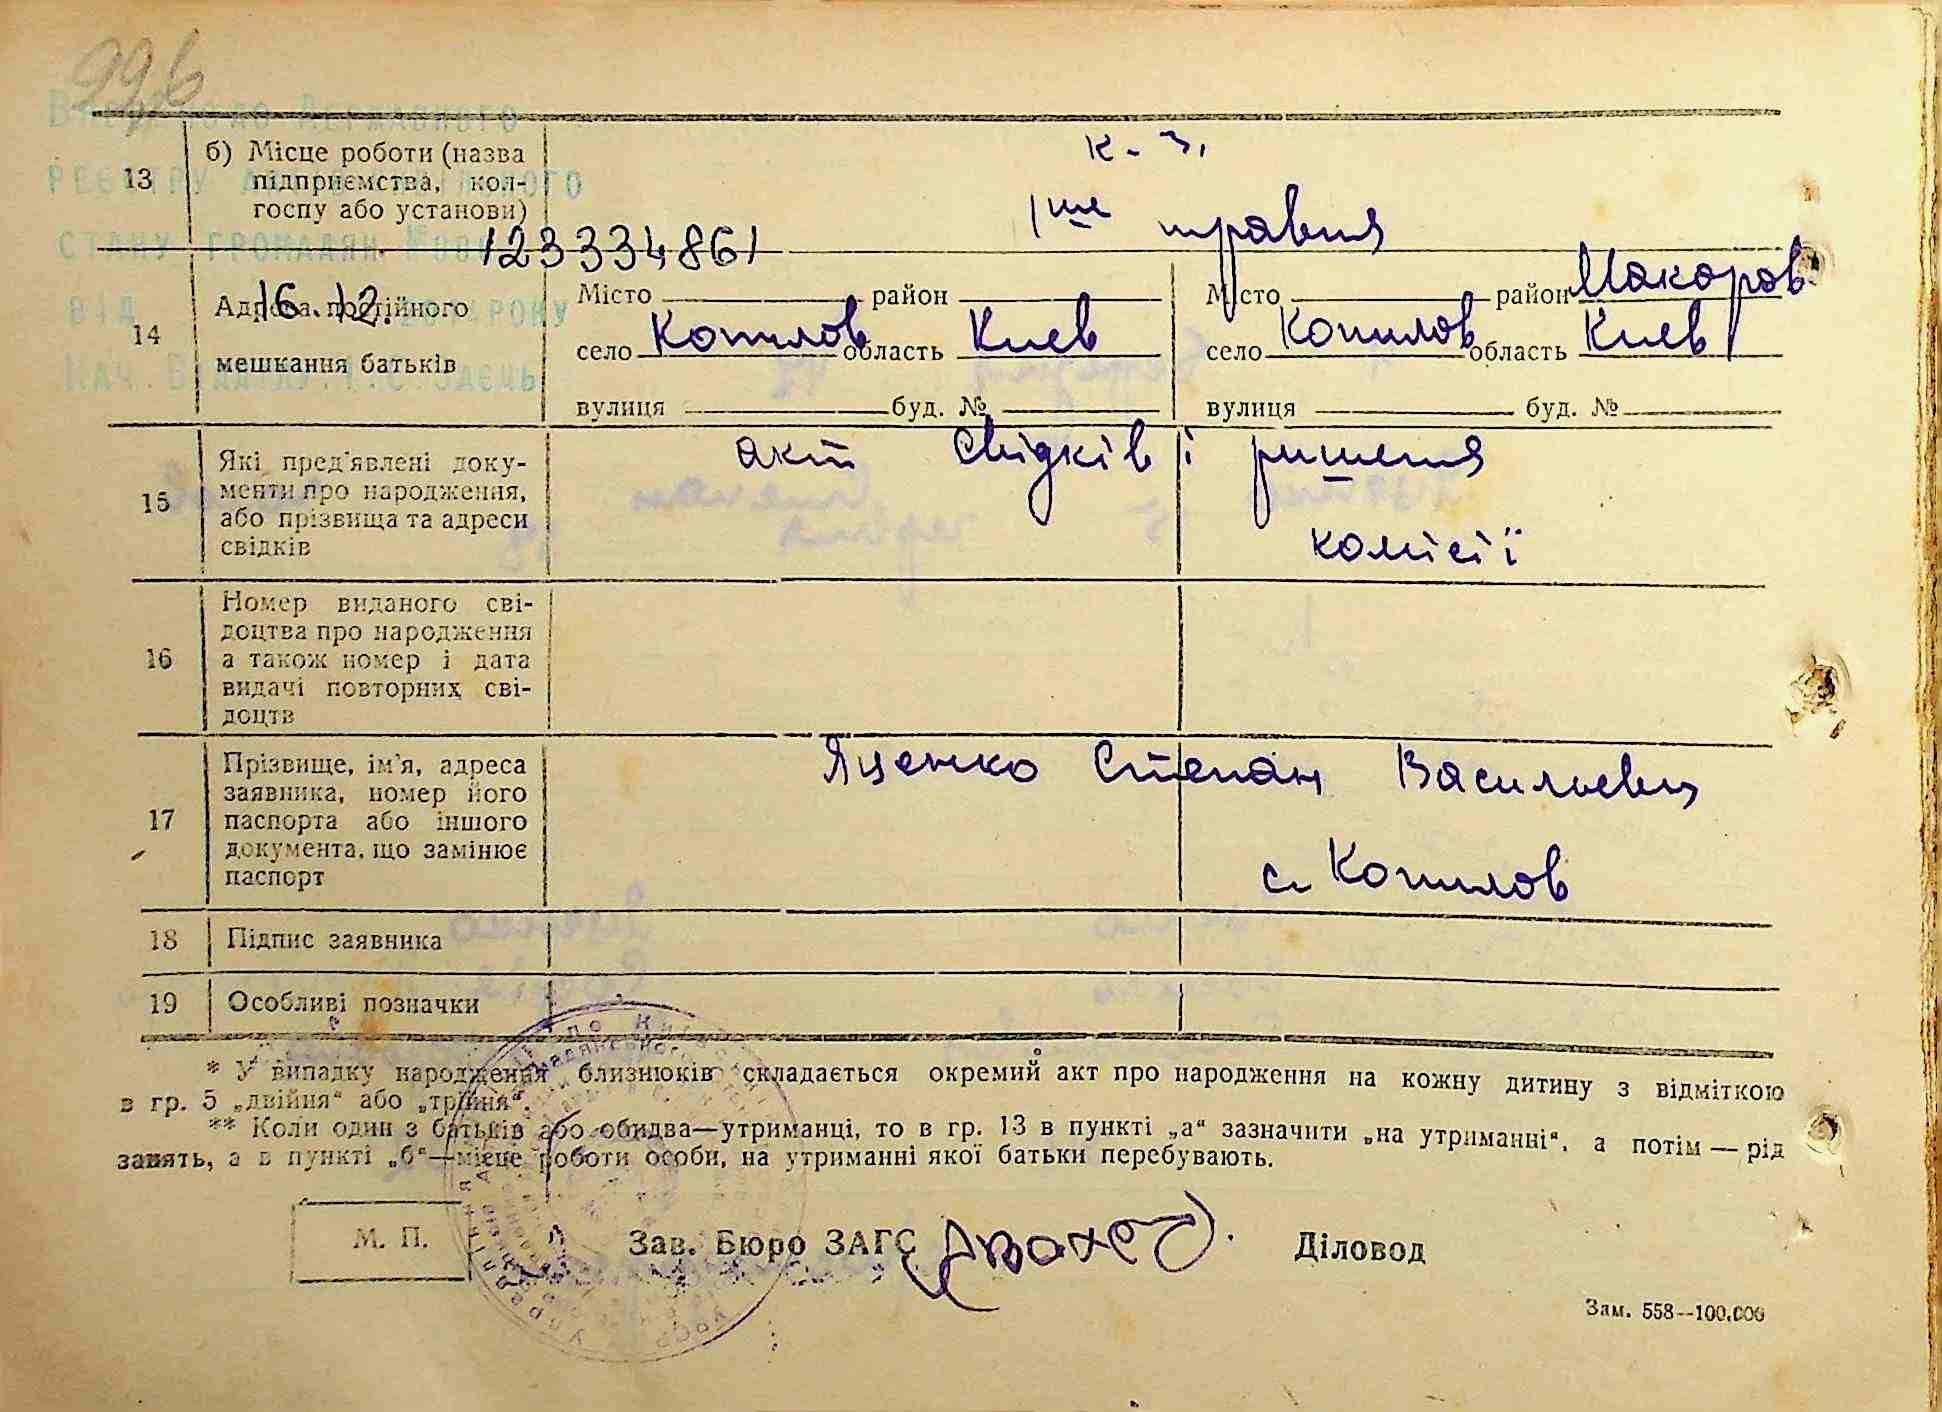 996
Внесено до Державного
реєстру актів цивільного
стану громадян №00
123334861
від 16.12. 2014 року
Нач. відділу Г.С. Заєць
13 б) Місце роботи (назва підприємства, кол-
госпу або установи)
к-з.
1ше травня
14 Адреса постійного
мешкання батьків
Місто район
село Копилов область Киев
вулиця буд. №
Місто район Макаров
село Копилов область Киев
вулиця буд. №
15 Які пред'явлені доку-
менти про народження,
або прізвища та адреси
свідків
акт свідків і ришення
комісії
16 Номер виданого сві-
доцтва про народження
а також номер і дата
видачі повторних сві-
доцтв
17 Прізвище, ім'я, адреса
заявника, номер його
паспорта або іншого
документа, що замінює
паспорт
Яценко Степан Васильевич
с. Копилов
18 Підпис заявника
19 Особливі позначки
* У випадку народження близнюків складається окремий акт про народження на кожну дитину з відміткою
в гр. 5 „двійня“ або „трійня“.
** Коли один з батьків або обидва—утриманці, то в гр. 13 в пункті „а“ зазначити „на утриманні“, а потім — рід
занять, а в пункті „б“—місце роботи особи, на утриманні якої батьки перебувають.
М. П.
Зав. Бюро ЗАГС
Діловод
Зам. 558—100.000